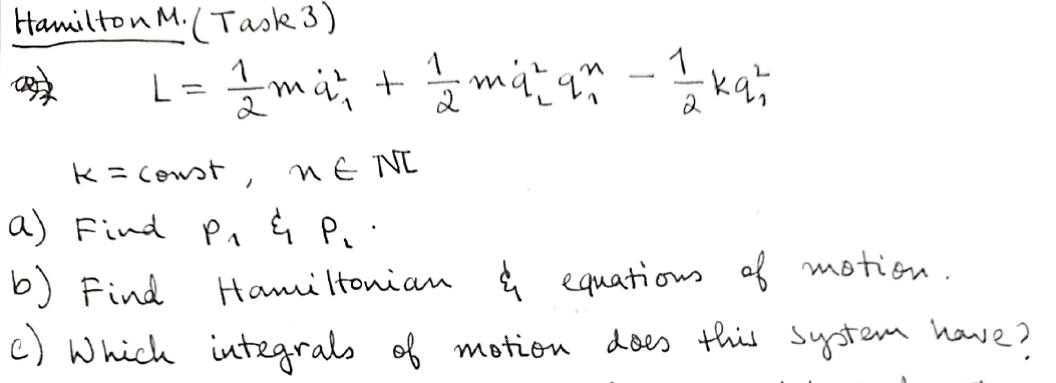 Hamilton M. (Task 3)
L = 1/2 m q̇₁² + 1/2 m q̇₂² q₁ⁿ − 1/2 k q₁²
k = const, n ∈ ℕ
a) Find p₁ & p₂.
b) Find Hamiltonian & equations of motion.
c) Which integrals of motion does this system have?